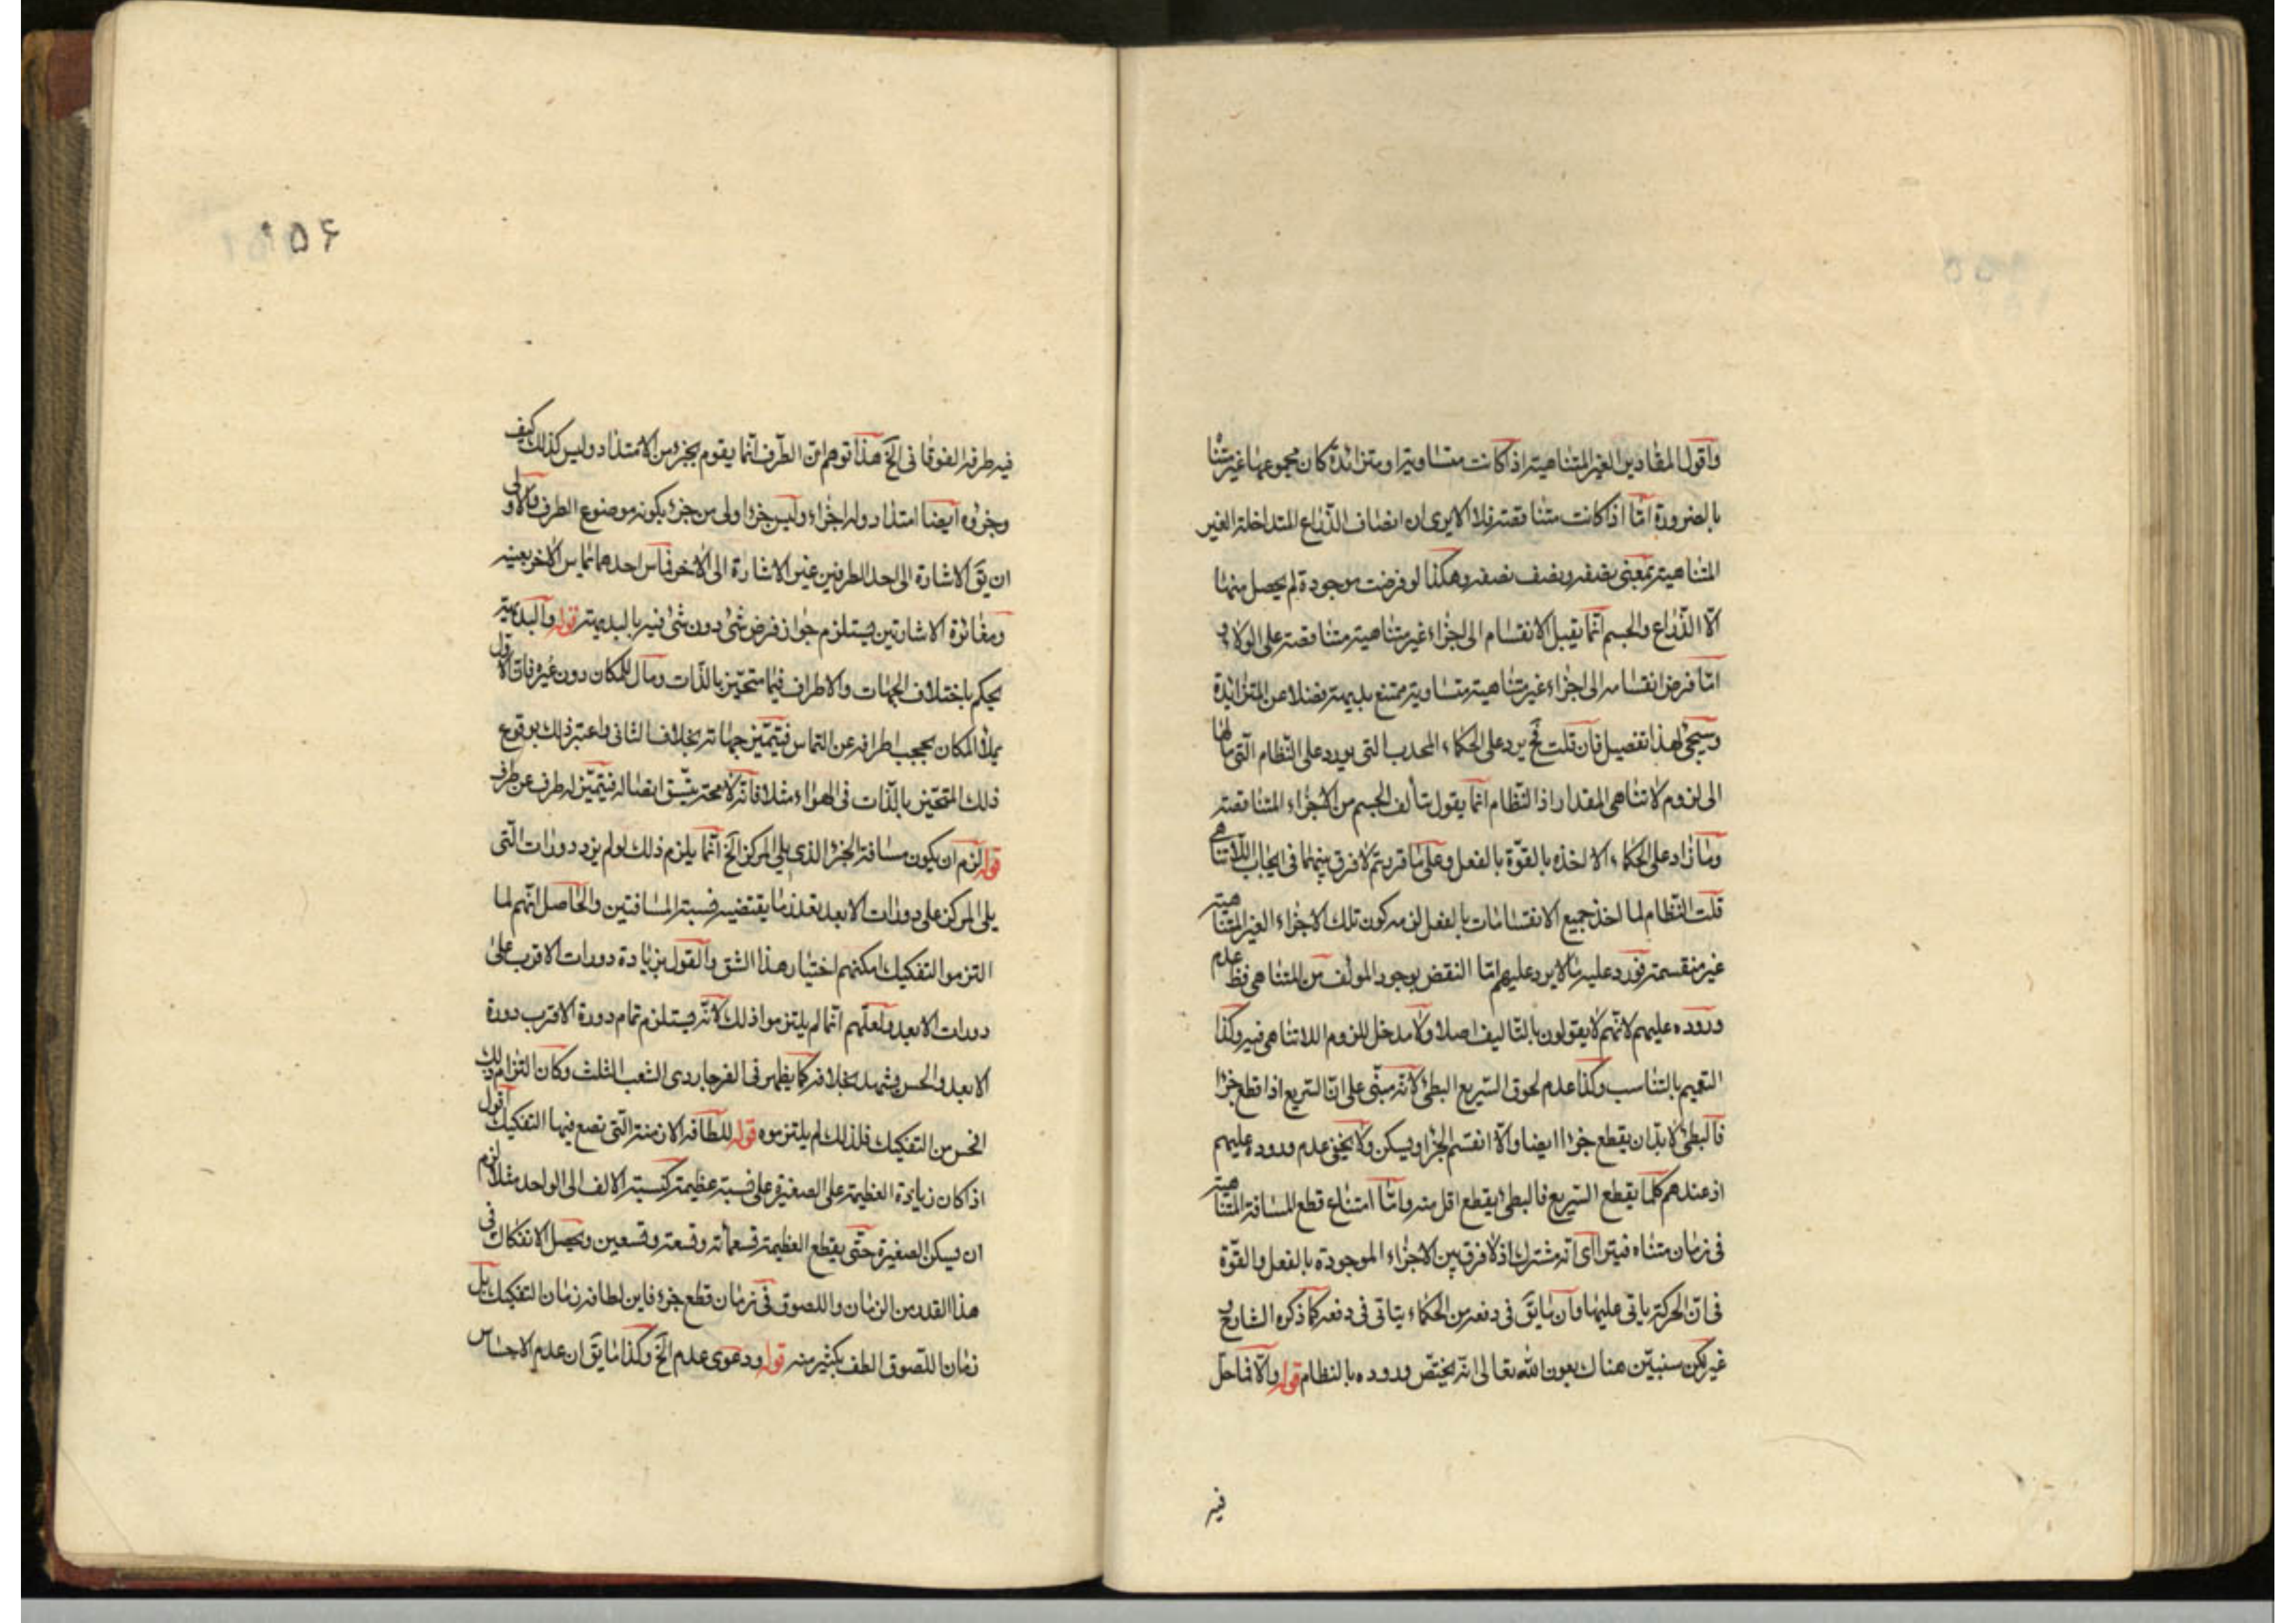 واقول المقادير الغير المتناهية اذا كانت متساوية او متزائدة كان مجموعها غير متناه
بالضرورة امّا اذا كانت متناقصة فلا الا يرى ان انصاف الذّراع المتداخلة الغير
المتناهية بمعنى نصفه ونصف نصفه وهكذا لو فرضت موجودة لم يحصل منها
الّا الذّراع والجسم انّما يقبل الانقسام الى اجزاء غير متناهية متناقصة على الولاء و
امّا فرض انقسامه الى اجزاء غير متناهية متساوية ممتنع بديهة فضلا عن المتزائدة
وسيجئ لهذا تفصيل فان قلت فح يرد على الحكماء المحذر التى يورد على النّظام الّتى مالها
الى لزوم لا تناهى المقدار اذ النّظام انّما يقول بتألف الجسم من الاجزاء المتناقصة
وما زاد على الحكماء الا اخذه بالقوّة بالفعل وعلى ما قررتم لا فرق بينهما فى ايجاب اللّاتناهى
قلت النّظام لما اخذ جميع الانقسامات بالفعل لزمه كون تلك الاجزاء الغير المتناهية
غير منقسمة فورد عليه ما لا يرد عليهم امّا النقض بوجود المؤلف من المتناهى فظ عدم
وروده عليهم لانّهم لا يقولون بالتّاليف اصلا ولا مدخل للزوم اللاتناهى فيه وكذا
التعيم بالتناسب وكذا عدم لحوق السّريع البطئ لانّه مبنّى على انّ السّريع اذا قطع جزءا
فالبطئ لا بدّ ان يقطع جزءا ايضا والّا انقسم الجزء او يسكن ولا يخفى عدم وروده عليهم
اذ عندهم كلّما يقطع السّريع فالبطئ يقطع اقل منه وامّا امتناع قطع المسافة المتناهية
فى زمان متناه فيترااى انه مشترك اذ لا فرق بين الاجزاء الموجودة بالفعل والقوّة
فى انّ الحركة ياتى عليها وان ما يق فى دفعه من الحكماء يتاتى فى دفعه كما ذكره الشارح و
غيره لكن سنبيّن هناك بعون الله تعالى انّه يختصّ وروده بالنظام قوله والّا فما حلّ
فيه
١٥۶
فيه طرفه الفوقانى الخ هذا توهم انّ الطّرف انّما يقوم بجزء من الامتداد وليس كذلك كيف
وجزؤه ايضا امتداد وله اجزاء وليس جزء اولى من جزء بكونه موضوع الطرف فالاولى
ان يق الاشارة الى احد الطرفين عين الاشارة الى الاخر فماس احدهما يماس الاخر بعينه
ومغائرة الاشارتين يستلزم جواز فرض شئ دون شئ فيه بالبديهة قوله والبديهة
يحكم باختلاف الجهات والاطراف فيما متحيّز بالذّات ومال للمكان دون غيره فانّ الاول
يملأ المكان يحجب اطرافه عن التماس فيتميّز جهاته بخلاف الثانى واعتبر ذلك بوقوع
ذلك المتحيّز بالذّات فى الهواء مثلا فانّه لا محة يشّق اتصاله فيتميّز له طرف عن طرف
قوله لزم ان يكون مسافة الجزء الذى يلى المركز الخ انّما يلزم ذلك لو لم يزد دورات الّتى
يلى المركز على دورات الابعد بقدر ما يقتضيه نسبة المسافتين والحاصل انّهم لما
التزموا التفكيك امكنهم اختيار هذا الشق والقول بزيادة دورات الاقرب على
دورات الابعد ولعلّهم انّما لم يلتزموا ذلك لانّه يستلزم تمام دورة الاقرب دورة
الابعد والحس يشهد بخلافه كما يظهر فى الفرجار ذى الشعب الثلث وكان التزام ذلك
افحش من التفكيك فلذلك لم يلتزموه قوله للطافة الازمنة الّتى تصع فيها التفكيك اقول
اذا كان زيادة العظيمة على الصغيرة على نسبة عظيمة كنسبة الالف الى الواحد مثلا لزم
ان يسكن الصغيرة حتّى يقطع العظيمة تسعمائة وتسعة وتسعين ويحصل الانفكاك فى
هذا القدر من الزمان واللصوق فى زمان قطع جزء فاين لطافة زمان التفكيك بل
زمان اللّصوق الطف بكثير منه قوله ودعوى عدم الخ وكذا ما يق ان عدم الاحساس